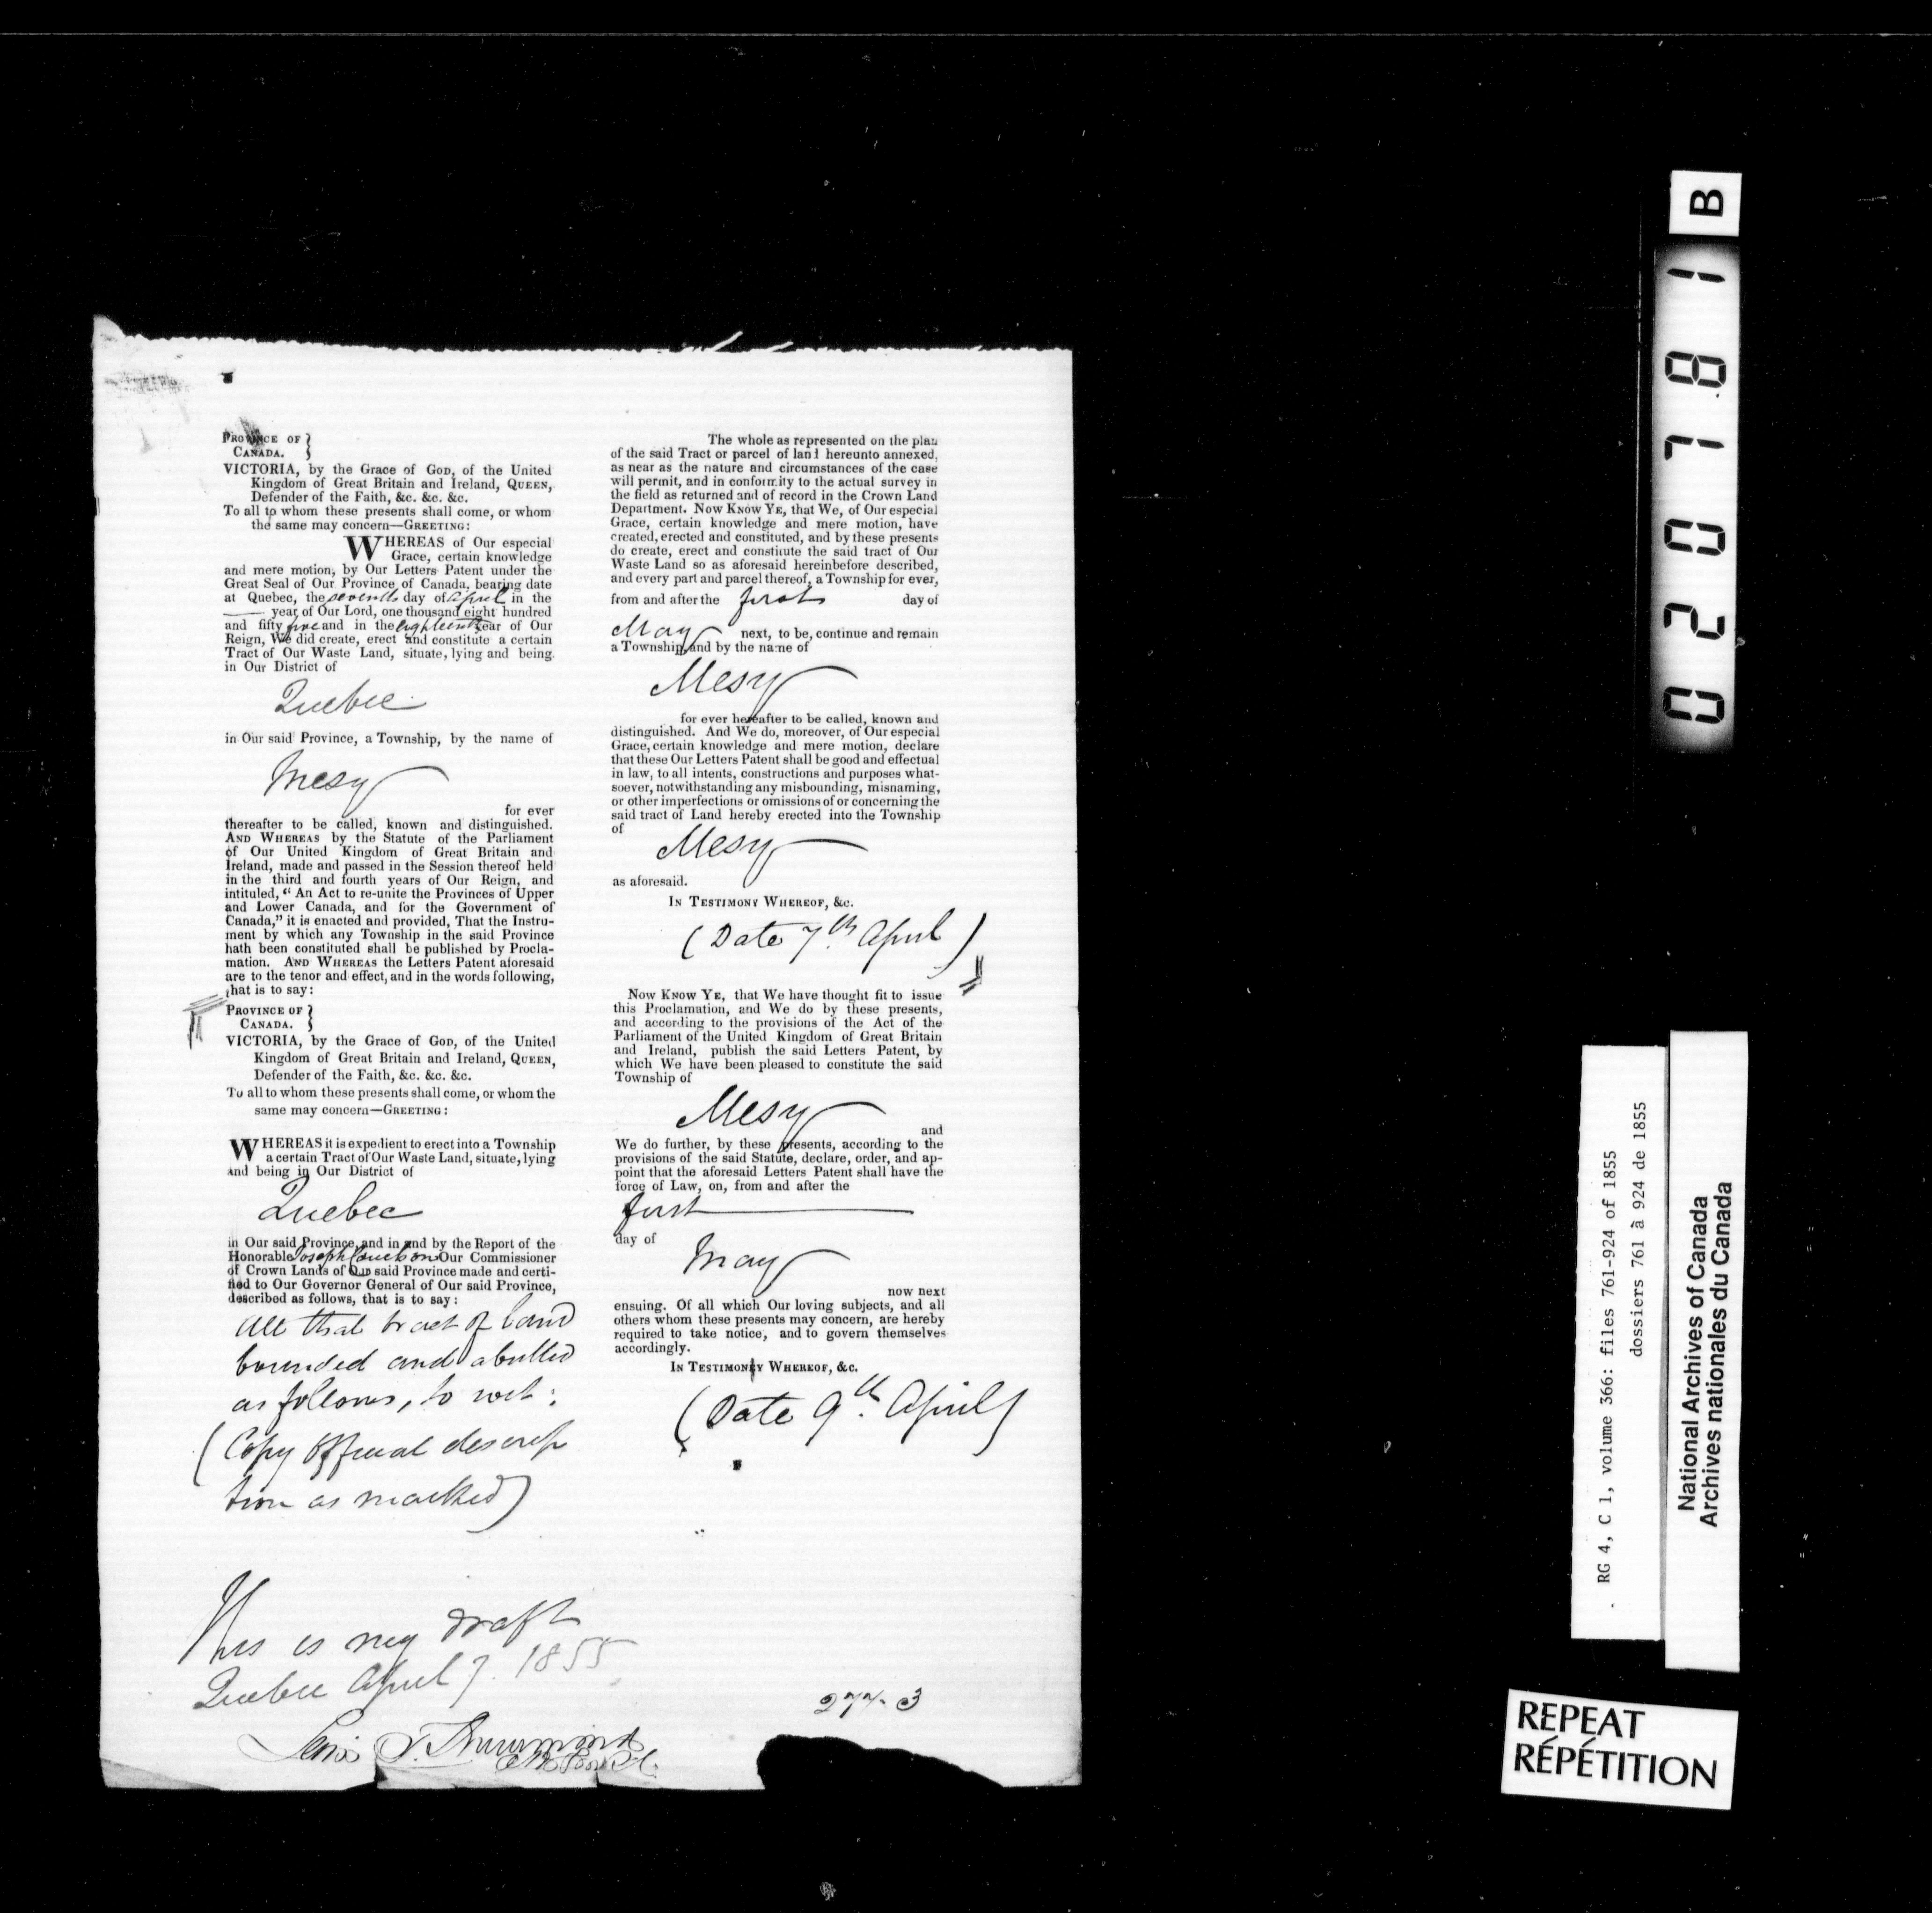 PROVINCE OF }
CANADA. }
VICTORIA, by the Grace of GOD, of the United
Kingdom of Great Britain and Ireland, QUEEN,
Defender of the Faith, &c. &c. &c.
To all to whom these presents shall come, or whom
the same may concern—GREETING:
WHEREAS of Our especial
Grace, certain knowledge
and mere motion, by Our Letters Patent under the
Great Seal of Our Province of Canada, bearing date
at Quebec, the seventh day of April in the
—— year of Our Lord, one thousand eight hundred
and fifty five and in the eighteenth year of Our
Reign, We did create, erect and constitute a certain
Tract of Our Waste Land, situate, lying and being
in Our District of
Quebec
in Our said Province, a Township, by the name of
Mesy
for ever
thereafter to be called, known and distinguished.
AND WHEREAS by the Statute of the Parliament
of Our United Kingdom of Great Britain and
Ireland, made and passed in the Session thereof held
in the third and fourth years of Our Reign, and
intituled, “ An Act to re-unite the Provinces of Upper
and Lower Canada, and for the Government of
Canada,” it is enacted and provided, That the Instru-
ment by which any Township in the said Province
hath been constituted shall be published by Procla-
mation. AND WHEREAS the Letters Patent aforesaid
are to the tenor and effect, and in the words following,
that is to say:
PROVINCE OF }
CANADA. }
VICTORIA, by the Grace of GOD, of the United
Kingdom of Great Britain and Ireland, QUEEN,
Defender of the Faith, &c. &c. &c.
To all to whom these presents shall come, or whom the
same may concern—GREETING:
WHEREAS it is expedient to erect into a Township
a certain Tract of Our Waste Land, situate, lying
and being in Our District of
Quebec
in Our said Province, and in and by the Report of the
Honorable Joseph Cauchon Our Commissioner
of Crown Lands of Our said Province made and certi-
fied to Our Governor General of Our said Province,
described as follows, that is to say:
All that tract of land
bounded and abutted
as follows, to wit:
(Copy Official descrip
tion as marked)
This is my draft
Quebec April 7. 1855
Lewis T. Drummond
The whole as represented on the plan
of the said Tract or parcel of land hereunto annexed,
as near as the nature and circumstances of the case
will permit, and in conformity to the actual survey in
the field as returned and of record in the Crown Land
Department. NOW KNOW YE, that We, of Our especial
Grace, certain knowledge and mere motion, have
created, erected and constituted, and by these presents
do create, erect and constitute the said tract of Our
Waste Land so as aforesaid hereinbefore described,
and every part and parcel thereof, a Township for ever,
from and after the first day of
May next, to be, continue and remain
a Township, and by the name of
Mesy
for ever hereafter to be called, known and
distinguished. And We do, moreover, of Our especial
Grace, certain knowledge and mere motion, declare
that these Our Letters Patent shall be good and effectual
in law, to all intents, constructions and purposes what-
soever, notwithstanding any misbounding, misnaming,
or other imperfections or omissions of or concerning the
said tract of Land hereby erected into the Township
of
Mesy
as aforesaid.
IN TESTIMONY WHEREOF, &c.
(Date 7th April)
NOW KNOW YE, that We have thought fit to issue
this Proclamation, and We do by these presents,
and according to the provisions of the Act of the
Parliament of the United Kingdom of Great Britain
and Ireland, publish the said Letters Patent, by
which We have been pleased to constitute the said
Township of
Mesy
and
We do further, by these presents, according to the
provisions of the said Statute, declare, order, and ap-
point that the aforesaid Letters Patent shall have the
force of Law, on, from and after the
first
day of
May
now next
ensuing. Of all which Our loving subjects, and all
others whom these presents may concern, are hereby
required to take notice, and to govern themselves
accordingly.
IN TESTIMONY WHEREOF, &c.
(Date 9th April)
277-3
020781 B
RG 4, C 1, volume 366: files 761-924 of 1855
dossiers 761 à 924 de 1855
National Archives of Canada
Archives nationales du Canada
REPEAT
RÉPÉTITION